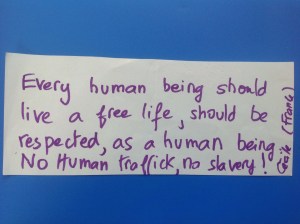 Every human being should
live a free life, should be
respected, as a human being.
No Human traffick, no slavery!
(France)